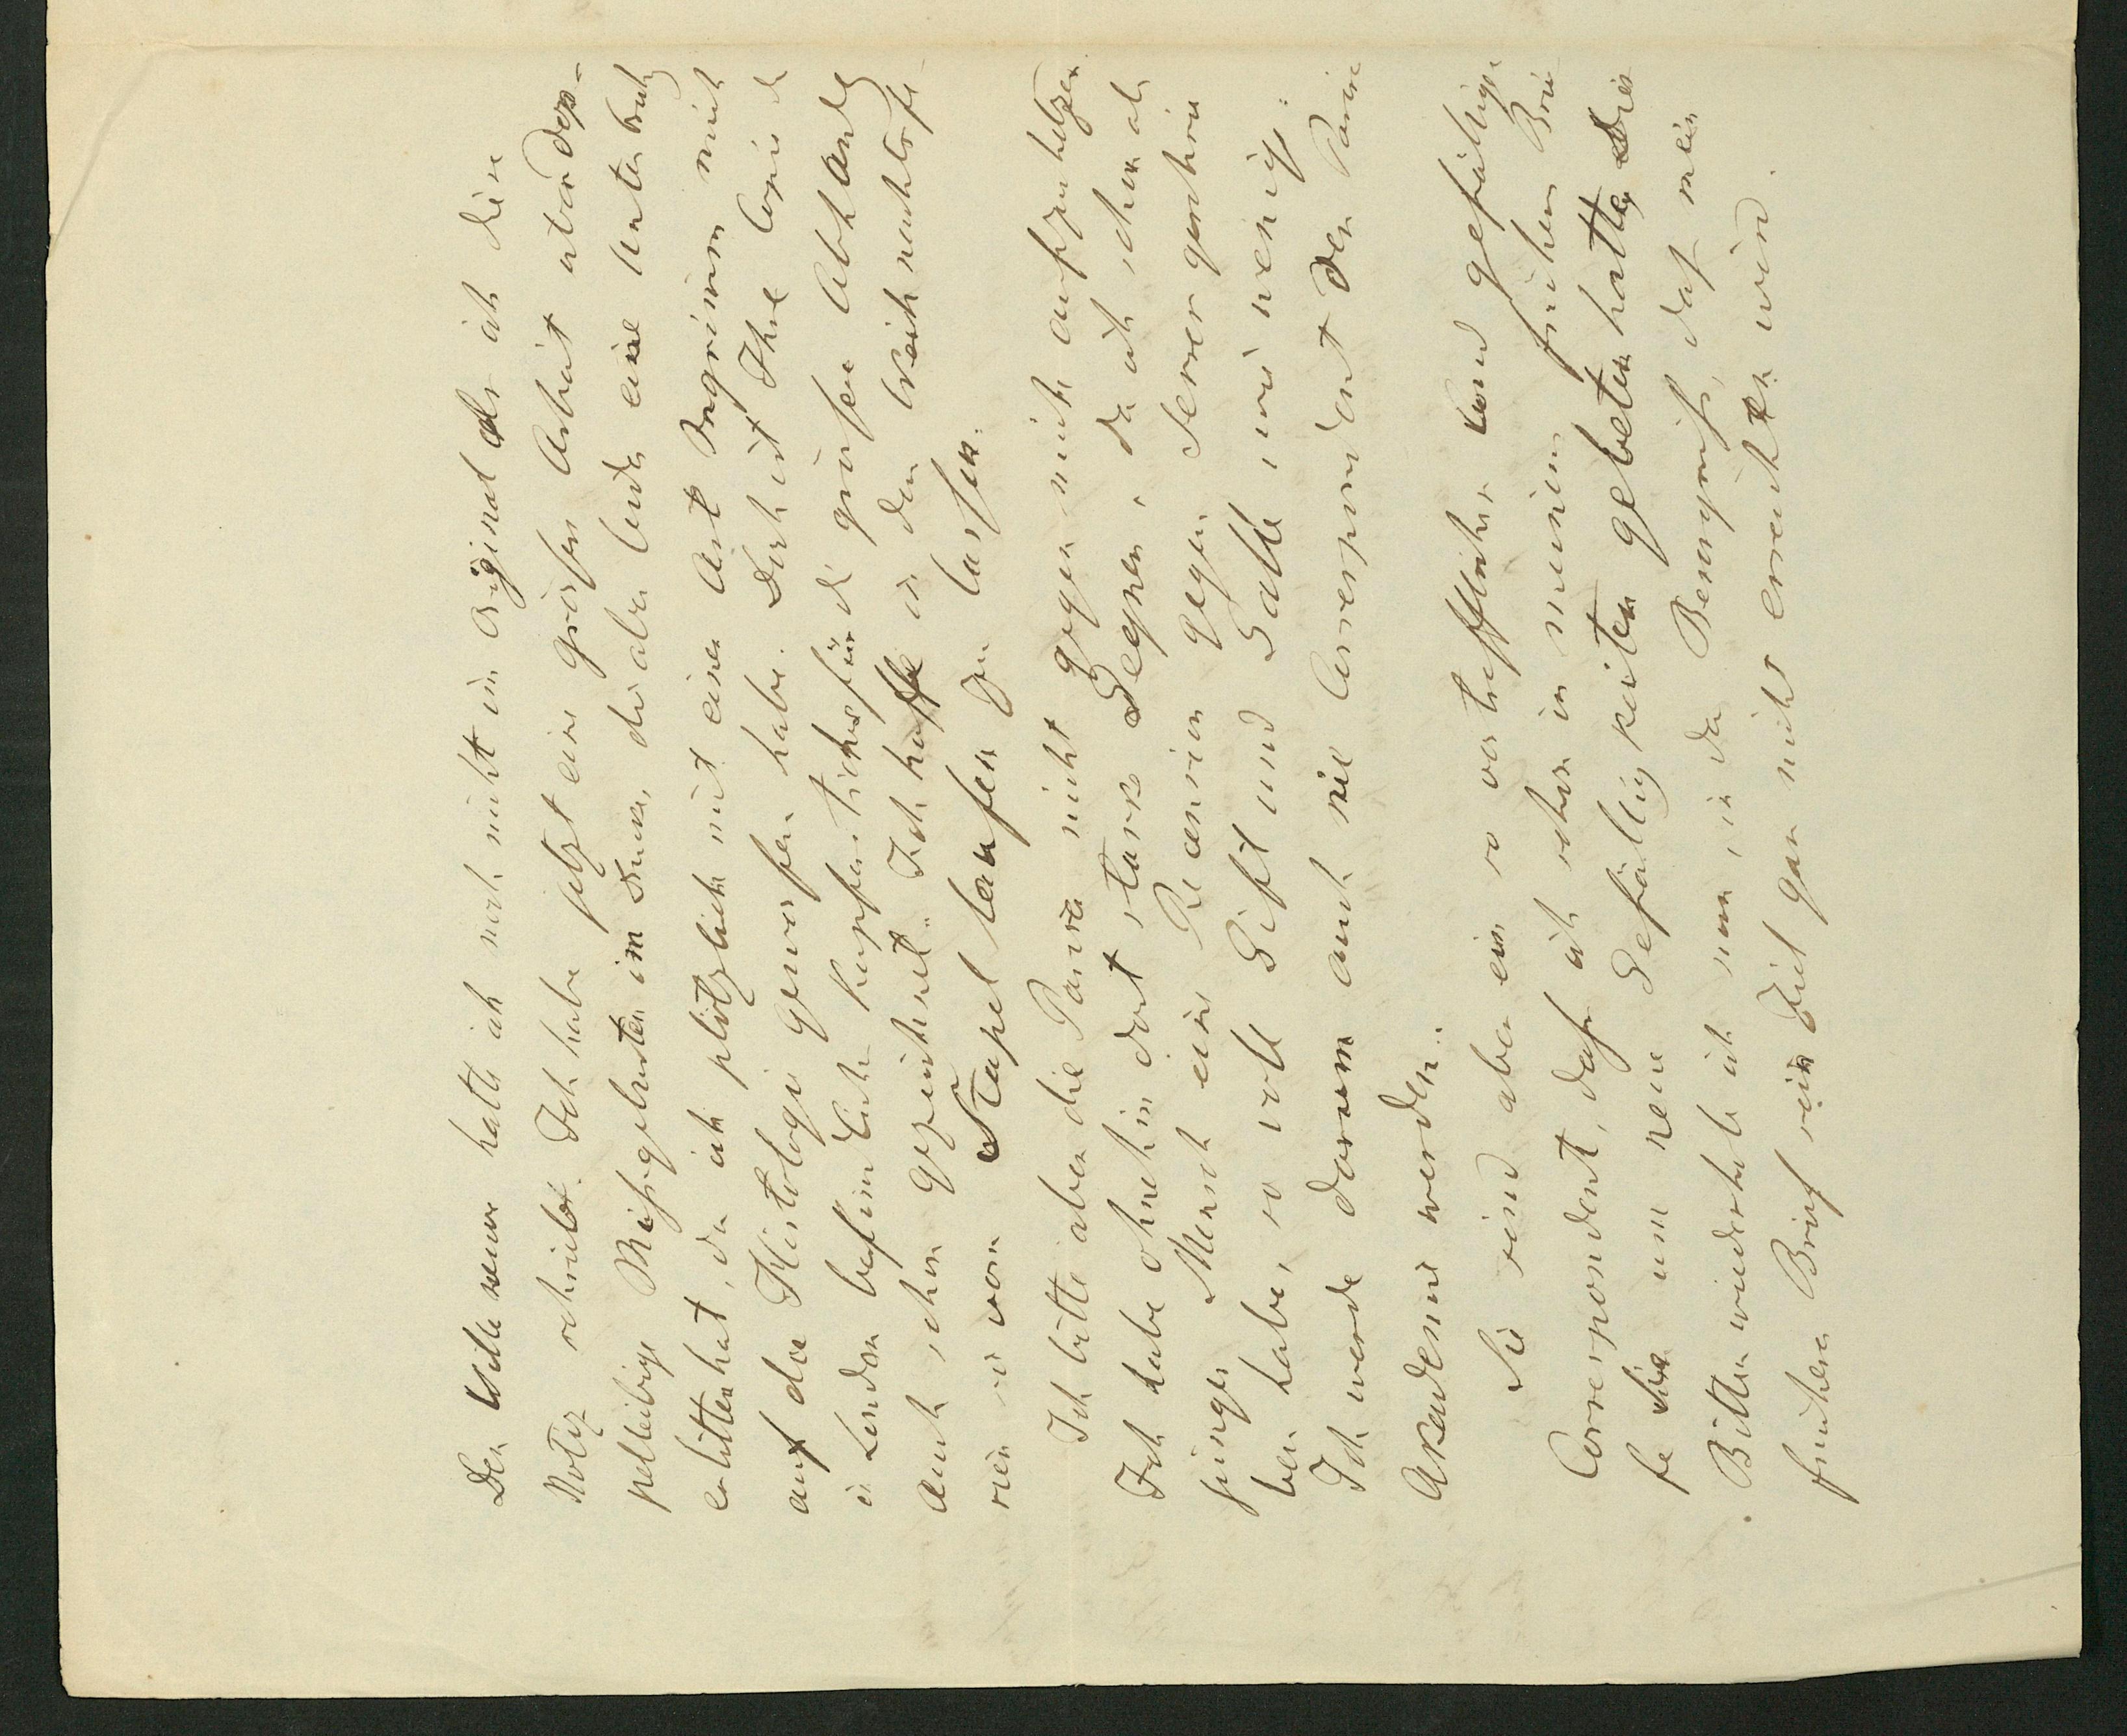 Den Willemeur hatte ich noch nicht im Original als ich die
Notiz schrieb. Ich habe jetzt eine größere Arbeit über dop-
pelleibige Mißgeburten im Druck, die aber leider eine Unterbrechg
erlitten hat, da ich plötzlich mit einer Art Ingrimm mich
auf die Histologie geworfen habe. Doch ist Ihre Copie d
in London befindliche Kupferstiches für d größere Abhandlg
auch schon gezeichnet. Ich hoffe in den Weihnachtsfe-
rien sie vom Stapel laufen zu lassen.
Ich bitte aber die Pariser nicht gegen mich aufzuhetzen.
Ich habe ohnehin dort starke Gegner, da ich schon als
junger Mensch eine Recension gegen Serres geschrie
ben habe, so voll Gift und Galle, wie wenige.
Ich werde darum auch nie Correspondent der Pariser
Akademie werden.
Sie sind aber ein so vortrefflicher und gefälliger
Correspondent, daß ich schon in meinem frühern Brie
fe Sie um neue Gefälligkeiten gebeten hatte. Diese
Bitten wiederhole ich nun, in der Besorgniß, daß mein
früherer Brief sein Ziel gar nicht erreichen wird.